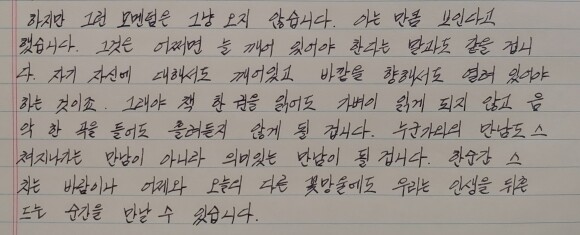 하지만 그런 모멘텀은 그냥 오지 않습니다. 아는 만큼 보인다고
했습니다. 그것은 어쩌면 늘 깨어 있어야 한다는 말과도 같을 겁니
다. 자기 자신에 대해서도 깨어있고 바깥을 향해서도 열려 있어야
하는 것이죠. 그래야 책 한 권을 읽어도 가벼이 읽게 되지 않고 음
악 한 곡을 들어도 흘려듣지 않게 될 겁니다. 누군가와의 만남도 스
쳐지나가는 만남이 아니라 의미있는 만남이 될 겁니다. 한순간 스
치는 바람이나 어제와 오늘이 다른 꽃망울에도 우리는 인생을 뒤흔
드는 순간을 만날 수 있습니다.